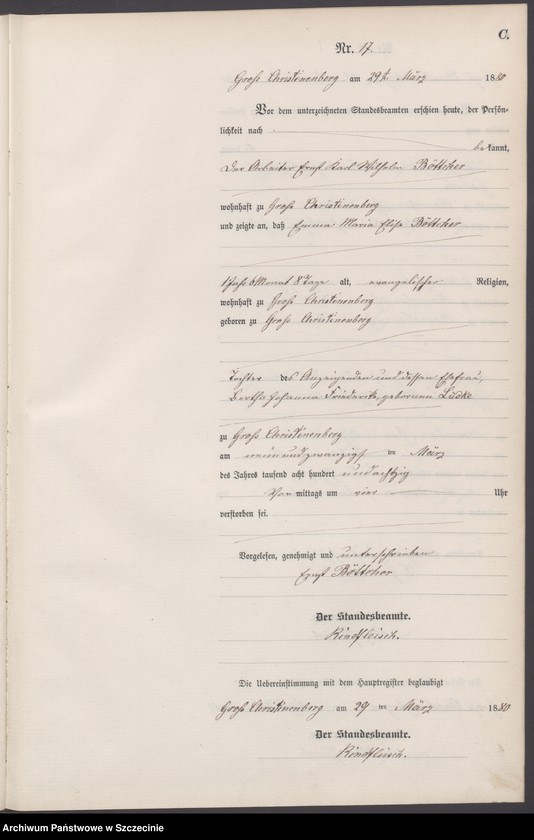 C.
Nr. 17.
Groß Christinenberg am 29t. März 1880
Vor dem unterzeichneten Standesbeamten erschien heute, der Persön-
lichkeit nach
bekannt,
Der Arbeiter Ernst Karl Wilhelm Böttcher
wohnhaft zu Groß Christinenberg
und zeigte an, daß Emma Maria Elise Böttcher
1 Jahr 6 Monat 8 Tage alt, evangelischer Religion,
wohnhaft zu Groß Christinenberg
geboren zu Groß Christinenberg
Tochter des Anzeigenden und dessen Ehefrau,
Bertha Johanna Friederike, gebornen Lüdke
zu Groß Christinenberg
am neun und zwanzigst ten März
des Jahres tausend acht hundert und achtzig
Vor mittags um vier Uhr
verstorben sei.
Vorgelesen, genehmigt und unterschrieben
Ernst Böttcher
Der Standesbeamte.
Rindfleisch.
Die Uebereinstimmung mit dem Hauptregister beglaubigt
Groß Christinenberg am 29 ten März 1880
Der Standesbeamte.
Rindfleisch.
Archiwum Państwowe w Szczecinie